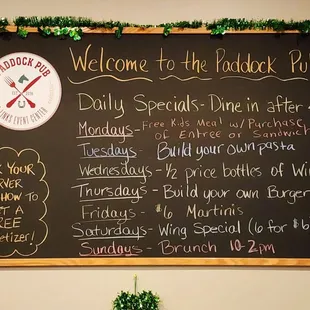 PADDOCK PUB
LINKS EVENT CENTER
Welcome to the Paddock
Daily Specials - Dine in after
Mondays - Free Kids Meal w/ Purchase
of Entree or Sandwich
Tuesdays - Build your own pasta
Wednesdays - 1/2 price bottles of
Thursdays - Build your own Burger
Fridays - $6 Martinis
Saturdays - Wing Special (6 for
Sundays - Brunch 10-2pm
HOW TO
FREE